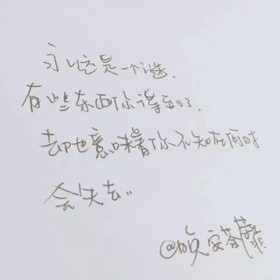 永远是一个谜.
有些东西你得到了.
却也意味着你不知在何时
会失去..
@晚安荼蘼